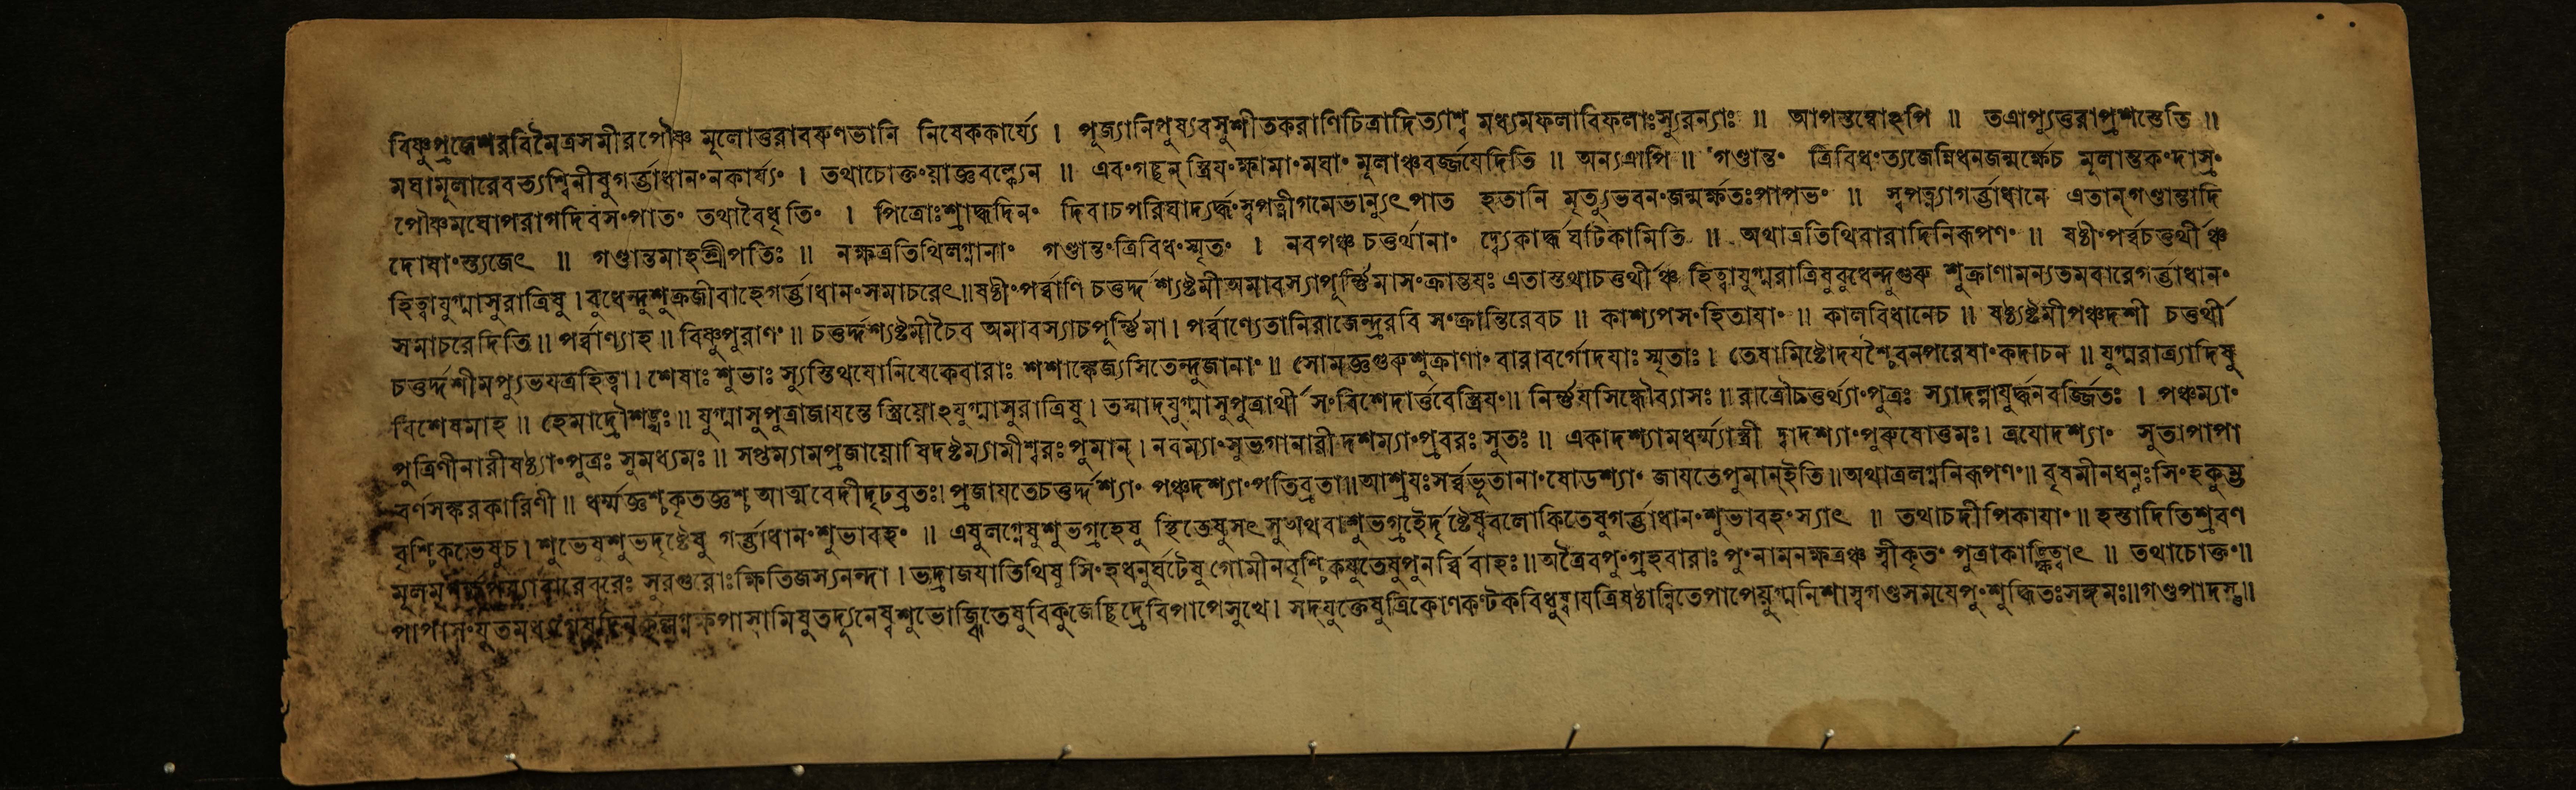 বিষ্ণুপ্রজেশরবিমৈত্রসমীরপৌষ্ণ মূলোত্তরাবরুণভানি নিষেককার্য্যে । পূজ্যানিপুষ্যবসুশীতকরাশ্বিচিত্রাদিত্যাশ্চ মধ্যমফলাবিফলাঃস্যুরন্যাঃ ॥ আপস্তম্বোঽপি ॥ তত্রাপ্যুত্তরাপ্রশস্তেতি ॥
মঘামূলারেবত্যশ্বিনীষুগর্ব্ভাধানংনকার্য্যং । তথাচোক্তংযাজ্ঞবল্ক্যেন ॥ এবংগচ্ছন্ স্ত্রিযংক্ষামাংমঘাং মূলাঞ্চবর্জ্জযেদিতি ॥ অন্যত্রাপি ॥ গণ্ডান্তং ত্রিবিধংত্যজেন্নিধনজন্মর্ক্ষেচ মূলান্তকংদাস্রং
পৌষ্ণমঘোপরাগদিবসংপাতং তথাবৈধৃতিং । পিত্রোঃশ্রাদ্ধদিনং দিবাচপরিঘাদ্যর্দ্ধংস্বপত্নীগমেভান্যুৎপাত হতানি মৃত্যুভবনংজন্মর্ক্ষতঃপাপভং ॥ স্বপত্ন্যাগর্ব্ভাধানে এতান্‌গণ্ডান্তাদি
দোষাংস্ত্যজেৎ ॥ গণ্ডান্তমাহশ্রীপতিঃ ॥ নক্ষত্রতিথিলগ্নানাং গণ্ডান্তংত্রিবিধংস্মৃতং । নবপঞ্চ চতুর্থানাং দ্ব্যেকার্দ্ধঘটিকামিতি ॥ অথাত্রতিথিবারাদিনিরূপণং ॥ ষষ্ঠীংপর্ব্বচতুর্থীঞ্চ
হিত্বাযুগ্মাসুরাত্রিষু । বুধেন্দুশুক্রজীবাহেগর্ব্ভাধানংসমাচরেৎ॥ষষ্ঠীংপর্ব্বাণি চতুর্দ্দশ্যষ্টমীঅমাবস্যাপূর্ণ্ণিমাসংক্রান্তযঃ এতাস্তথাচতুর্থীঞ্চ হিত্বাযুগ্মরাত্রিষুবুধেন্দুগুরু শুক্রাণামন্যতমবারেগর্ব্ভাধানং
সমাচরেদিতি॥ পর্ব্বাণ্যাহ ॥ বিষ্ণুপুরাণং ॥ চতুর্দ্দশ্যষ্টমীচৈব অমাবস্যাচপূর্ণ্ণিমা । পর্ব্বাণ্যেতানিরাজেন্দ্ররবি সংক্রান্তিরেবচ ॥ কাশ্যপসংহিতাযাং ॥ কালবিধানেচ ॥ ষষ্ঠ্যষ্টমীপঞ্চদশী চতুর্থী
চতুর্দ্দশীমপ্যুভযত্রহিত্বা । শেষাঃ শুভাঃ স্যুস্তিথযোনিষেকেবারাঃ শশাঙ্কেজ্যসিতেন্দুজানাং ॥ সোমজ্ঞগুরুশুক্রাণাং বারাবর্গোদযাঃ স্মৃতাঃ । তেষামিষ্টোদযশ্চৈবনপরেষাংকদাচন ॥ যুগ্মরাত্র্যাদিষু
বিশেষমাহ ॥ হেমাদ্রৌশঙ্খঃ ॥ যুগ্মাসুপুত্রাজাযন্তে স্ত্রিয়োঽযুগ্মাসুরাত্রিষু । তস্মাদ্‌যুগ্মাসুপুত্রার্থী সংবিশেদার্ত্তবেস্ত্রিযং॥ নির্ণ্ণযসিন্ধৌব্যাসঃ ॥ রাত্রৌচতুর্থ্যাংপুত্রঃ স্যাদল্পাযুর্দ্ধনবর্জ্জিতঃ । পঞ্চম্যাং
পুত্রিণীনারীষষ্ঠ্যাংপুত্রঃ সুমধ্যমঃ ॥ সপ্তম্যামপ্রজাযোষিদষ্টম্যামীশ্বরঃ পুমান্ । নবম্যাংসুভগানারী দশম্যাংপ্রবরঃ সুতঃ ॥ একাদশ্যামধর্ম্ম্যাস্ত্রী দ্বাদশ্যাংপুরুষোত্তমঃ । ত্রযোদশ্যাং সুতাপাপা
বর্ণসঙ্করকারিণী ॥ ধর্ম্মজ্ঞশ্চকৃতজ্ঞশ্চ আত্মবেদীদৃঢব্রতঃ। প্রজাযতেচতুর্দ্দশ্যাং পঞ্চদশ্যাংপতিব্রতা॥আশ্রযঃসর্ব্বভূতানাংষোডশ্যাং জাযতেপুমান্‌ইতি॥অথাত্রলগ্ননিরূপণং॥ বৃষমীনধনুঃসিংহকুম্ভ
বৃশ্চিকভেষুচ। শুভেষুশুভদৃষ্টেষু গর্ব্ভাধানংশুভাবহং ॥ এষুলগ্নেষুশুভগ্রহেষু স্থিতেষুসৎ সুঅথবাশুভগ্রহৈর্দৃষ্টেষ্ববলোকিতেষুগর্ব্ভাধানংশুভাবহংস্যাৎ ॥ তথাচদীপিকাযাং ॥ হস্তাদিতিশ্রবণ
সুরগুরোঃক্ষিতিজস্যনন্দা । ভদ্রাজযাতিথিষু সিংহধনুর্ঘটেষু গোমীনবৃশ্চিকযুতেষুপুনর্ব্বিবাহঃ ॥ অত্রৈবপুংগ্রহবারাঃ পুংনামনক্ষত্রঞ্চ স্বীকৃতং পুত্রাকাঙ্ক্ষিত্বাৎ ॥ তথাচোক্তং॥
ত্রিকোণকণ্টকবিধুষ্বাযত্রিষষ্ঠান্বিতেপাপেযুগ্মনিশাস্বগণ্ডসমযেপুংশুদ্ধিতঃসঙ্গমঃ॥গণ্ডপাদস্তু॥